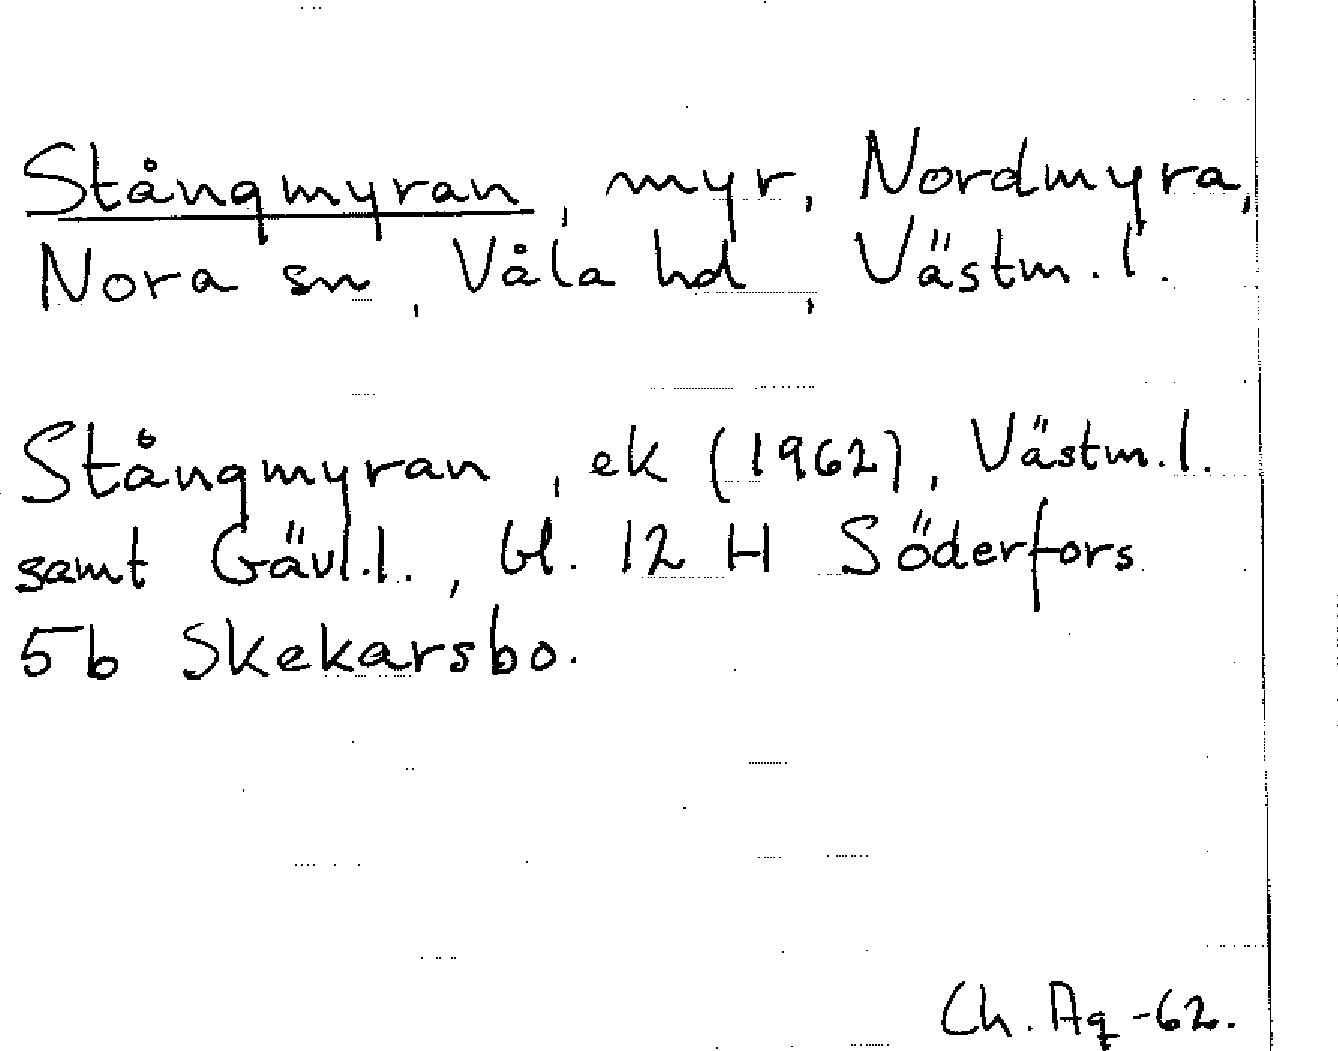 Stångmyran, myr, Nordmyra,
Nora sn, Våla hd, Västm.l.
Stångmyran, ek (1962), Västm.l.
samt Gävl.l., bl. 12 H Söderfors
5b Skekarsbo.
Ch. Ag -62.